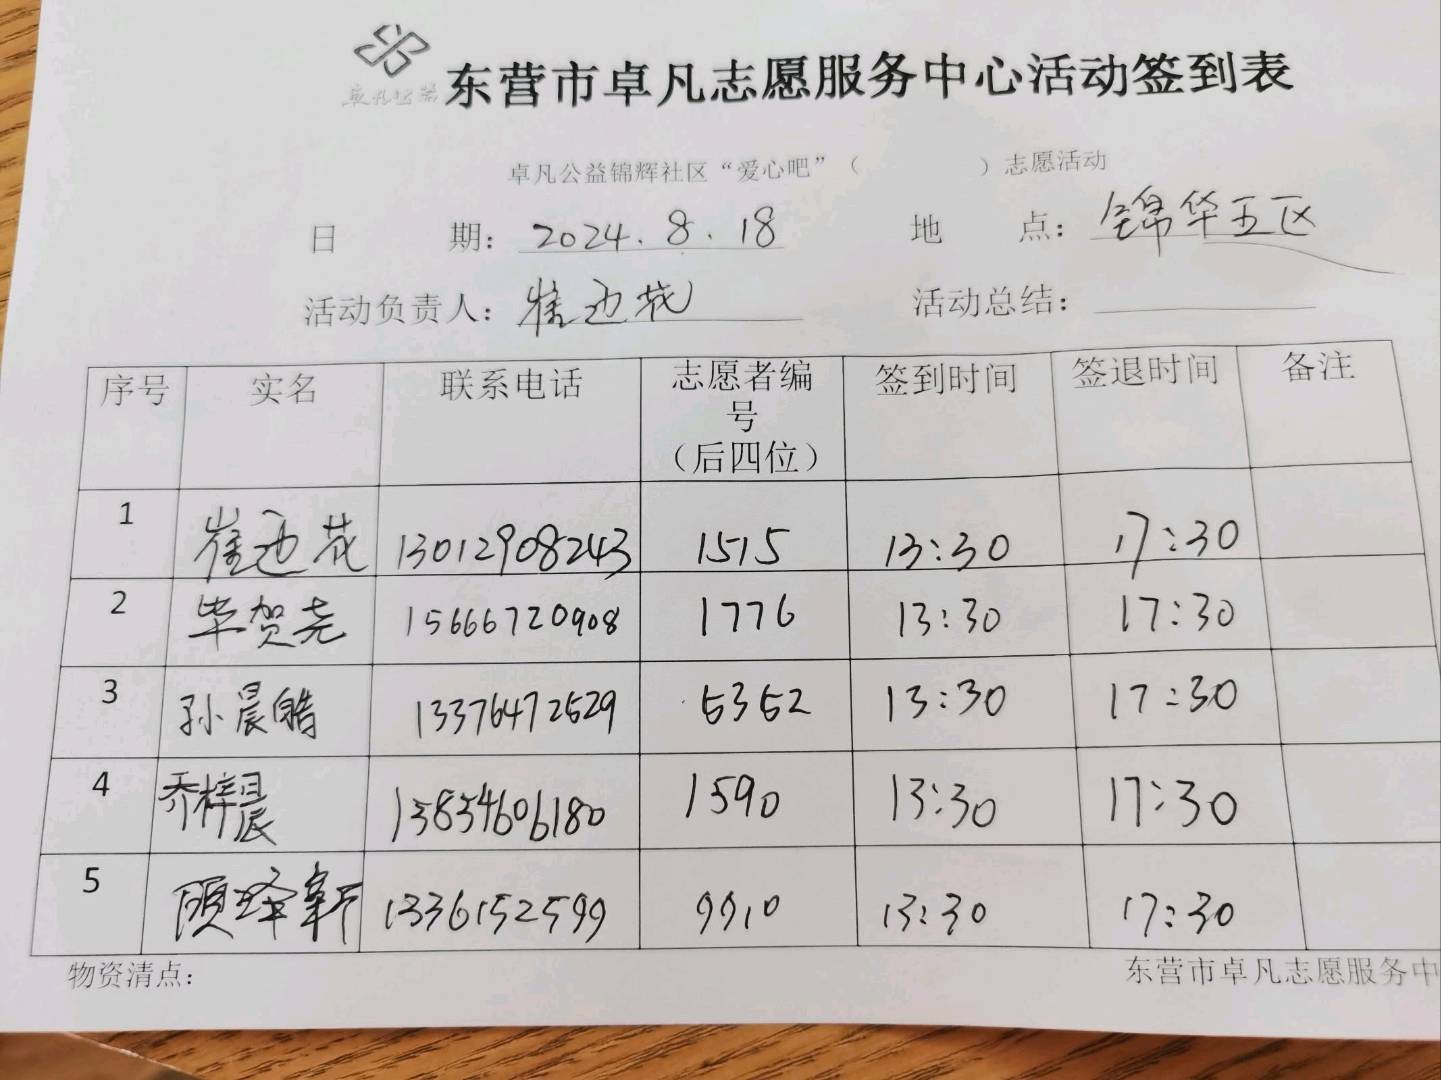 东营市卓凡志愿服务中心活动签到表
卓凡公益锦辉社区“爱心吧”（ ）志愿活动
日 期： 2024.8.18 地 点： 锦华五区
活动负责人： 崔迎花 活动总结：
序号 实名 联系电话 志愿者编号（后四位） 签到时间 签退时间 备注
1 崔迎花 13012908243 1515 13:30 17:30
2 毕贺尧 15666720908 1776 13:30 17:30
3 孙晨皓 13376472529 5352 13:30 17:30
4 乔梓晨 13854606180 1590 13:30 17:30
5 顾泽轩 1336152599 9910 13:30 17:30
物资清点： 东营市卓凡志愿服务中